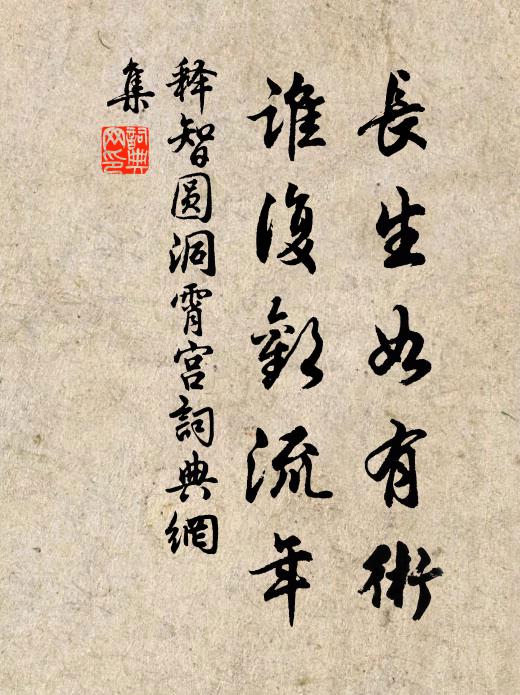 長生如有術
誰復歎流年
释智圆洞霄宫詞典網
集
詞典
网印